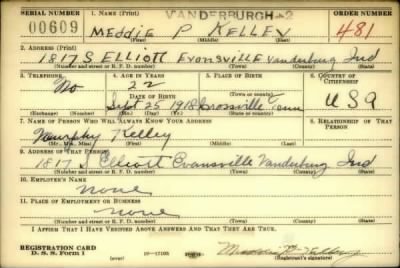 VANDERBURGH-2
SERIAL NUMBER 1. NAME (Print) ORDER NUMBER
00609 MEDDIE P KELLEY 481
(First) (Middle) (Last)
2. ADDRESS (Print)
1817 S Elliott Evansville Vanderburg Ind
(Number and street or R. F. D. number) (Town) (County) (State)
3. TELEPHONE 4. AGE IN YEARS 5. PLACE OF BIRTH 6. COUNTRY OF CITIZENSHIP
No 22
DATE OF BIRTH
Sept 25 1918 Crossville Tenn USA
(Exchange) (Number) (Mo.) (Day) (Yr.) (Town) (State or country)
7. NAME OF PERSON WHO WILL ALWAYS KNOW YOUR ADDRESS 8. RELATIONSHIP OF THAT PERSON
Murphy Kelley
(Mr., Mrs., Miss) (First) (Middle) (Last)
9. ADDRESS OF THAT PERSON
1817 S Elliott Evansville Vanderburg Ind
(Number and street or R. F. D. number) (Town) (County) (State)
10. EMPLOYER'S NAME
none
11. PLACE OF EMPLOYMENT OR BUSINESS
none
(Number and street or R. F. D. number) (Town) (County) (State)
I AFFIRM THAT I HAVE VERIFIED ABOVE ANSWERS AND THAT THEY ARE TRUE.
REGISTRATION CARD
D. S. S. Form 1 (over) 16—17105 (Registrant's signature)